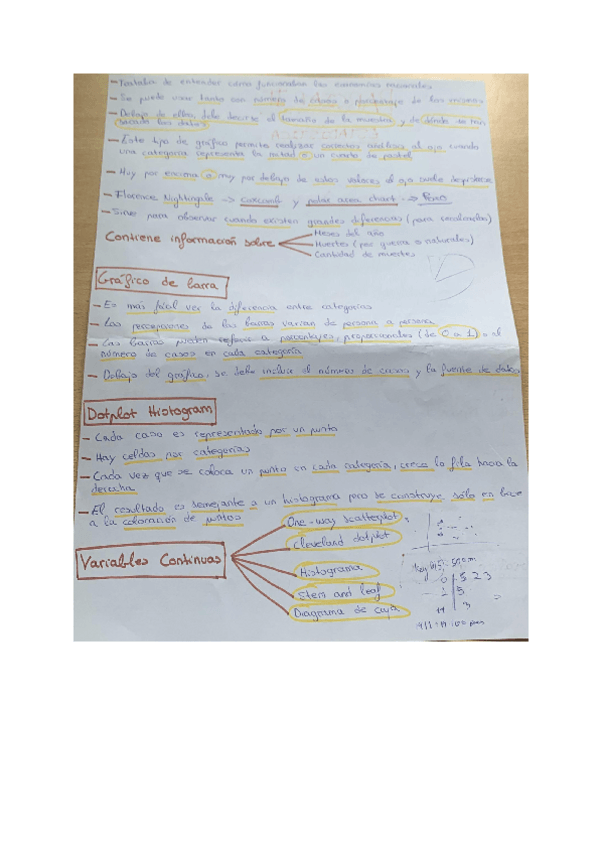 - Trataba de entender cómo funcionaban las economías nacionales
- Se puede usar tanto con número de casos o porcentaje de los mismos
- Debajo de ellos, debe decirse el tamaño de la muestra y de dónde se han
sacado los datos
- Este tipo de gráfico permite realizar correctos análisis al ojo cuando
una categoría representa la mitad o un cuarto de pastel
- Muy por encima o muy por debajo de estos valores el ojo suele
- Florence Nightingale -> coxcomb y polar area chart ->
- Sirve para observar cuando existen grandes diferencias (para
Contiene información sobre
Meses del año
Muertes (por guerra o naturales)
Cantidad de muertes
Gráfico de barra
- Es más fácil ver la diferencia entre categorías
- Las percepciones de las barras varían de persona a persona
- Las barras pueden referir a porcentajes, proporciones (de 0 a 1) o al
número de casos en cada categoría
- Debajo del gráfico, se debe incluir el números de casos y la fuente de datos
Dotplot Histogram
- Cada caso es representado por un punto
- Hay celdas por categorías
- Cada vez que se coloca un punto en cada categoría, crece la fila hacia la
derecha
- El resultado es semejante a un histograma pero se construye sólo en base
a la coloración de puntos
Variables Continuas
One-way scatterplot
Cleveland dotplot
Histograma
Stem and leaf
Diagrama de caja
0 5 2 3
1 5
3